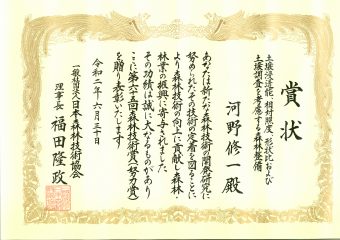 賞状
土壌浸透能、相対照度、形状比および
土壌調査を考慮する森林整備
河野修一殿
あなたは新たな森林技術の開発研究に
努められその技術の定着を図ることに
より森林技術の向上に貢献し森林・
林業の振興に寄与されました
その功績は誠に大なるものがあり
ここに第六十回森林技術賞(努力賞)
を贈り表彰いたします
令和二年六月三十日
一般社団法人日本森林技術協会
理事長 福田隆政